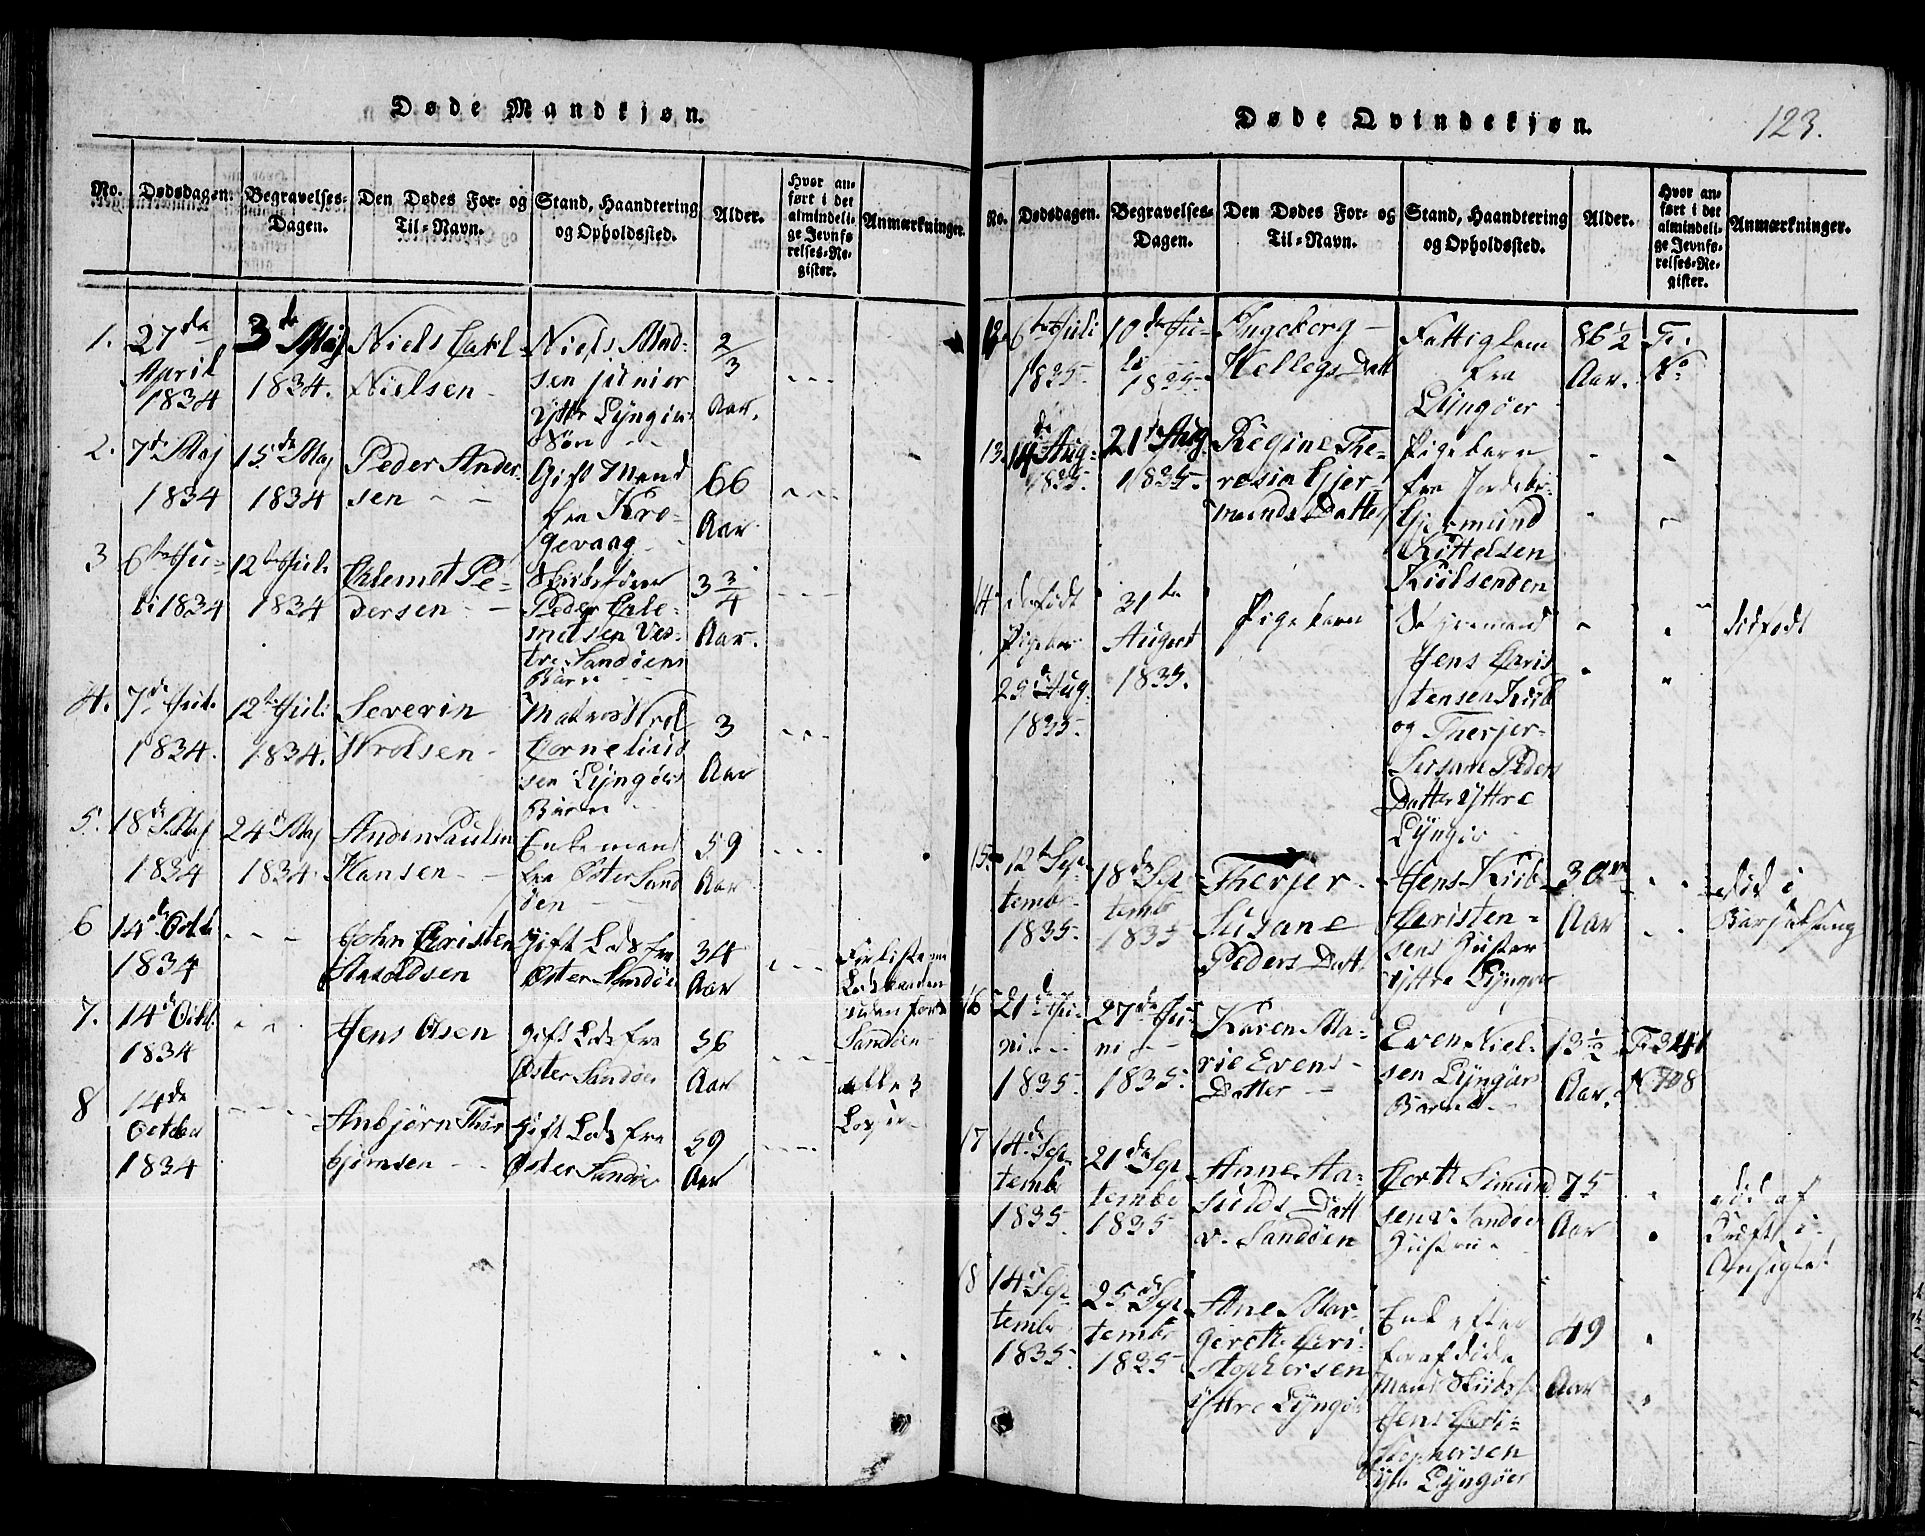 Døde Mandkjøn.
No.
Dødsdagen.
Begravelses-
Dagen.
Den Dødes For- og
Til-Navn.
Stand, Haandtering
og Opholdssted.
Alder.
Hvor an-
ført i det
almindeli-
ge Jevnfø-
relses-Re-
gister.
Anmærkninger.
1.
27de
April
1834
3de Maj
1834.
Niels Carl
Nielsen
Niels Mad-
sen junier
Yttr Lyngørs
Søn
2/3
Aar.
2.
7de Maj
1834
15de Maj
1834
Peder Ander-
sen
Gift Mand
fra Kro-
gevaag
66
Aar
3
6te Ju-
li 1834
12te Juli
1834
Erlemdt Pe-
dersen
Peder Erle-
mdsen Ves-
tre Sandøens
Barn
3 3/4
Aar.
4.
7de Juli
1834.
12te Juli
1834.
Severin
Wrolsen
Matros Wrol
Cornelius
sen Lyngørs
Barn
3
Aar
5.
18de Maj
1834
24de Maj
1834
Anden Paulsen
Hansen
Enkemand
fra Øster Sand
øen
59
Aar
6
14de Octb
1834
John Cristen
Gift Lods fra
Øster Sandøe
34
Aar
7.
14de Octb.
1834
Jens Olsen
gift Lods fra
Øster Sandøe
56
Aar
Sandøen
alle 3
8
14de
October
1834
Anbjørn Thor
bjørnsen
Gift Lods fra
Øster Sandøe
59
Aar
Døde Qvindekjøn.
123.
No.
Dødsdagen.
Begravelses-
Dagen.
Den Dødes For- og
Til-Navn.
Stand, Haandtering
og Opholdssted.
Alder.
Hvor an-
ført i det
almindeli-
ge Jevnfø-
relses-Re-
gister.
Anmærkninger.
12
6te Juli
1835.
10de Ju-
li
1835.
Ingeborg
Hellegs Datt
Fattiglem
fra
Lyngøer
86 1/2
Aar.
13.
14de Aug-
1835.
21de Aug
1835.
Regine The-
resia Gjer-
munds Datter
Pigebarn
fra Jordebr.
Gjermund
Kittelsen
14
Pigebar
29de Aug.
1835.
31te
August
1835.
Pigebarn
Jens Cris
tensen Kiib
og Therjer-
Susane Peders
Datter Yttre
Lyngør
dødfødt
15.
12te Sep
tembr
1835.
18de Sep
tembr
1835
Therjer
Susane
Peders Datt.
Jens Kiib
Cristen-
sens Huster
Yttre Lyngør
30
Aar
død i
Barselseng
16
21de Ju-
ni
1835.
27de Ju-
ni
1835.
Karen Ma-
rie Evens
Datter
Even Niel-
sen Lyngørs
Barn
13 1/2
Aar.
17
14de Sep
tembr
1835.
21de Sep
tembr
1835
Anne Aa-
sulds Datt
v. Sandøen
Cortt Simund
sen v. Sandøe
Hustru
75
Aar
død af
Kræft i
Ansigtet
18
14de Sep
tembr
1835.
25de Sep
tembr
1835
Ane Mar
grethe Cri-
stophersen
Yttre Lyngør
Enke efter
foraf døde
Mand Skibsf.
Jens Cri-
stophersen
Ytre Lyngøer
49
Aar